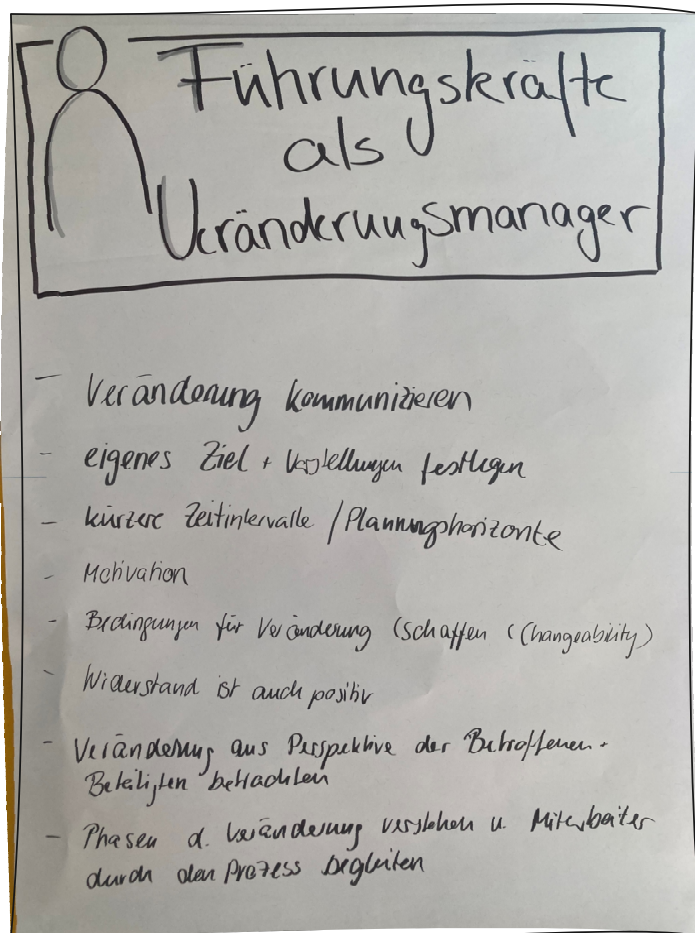 Führungskräfte
als
Veränderungsmanager
- Veränderung kommunizieren
- eigenes Ziel + Vorstellungen festlegen
- kürzere Zeitintervalle / Planungshorizonte
- Motivation
- Bedingungen für Veränderung schaffen (Changeability)
- Widerstand ist auch positiv
- Veränderung aus Perspektive der Betroffenen +
Beteiligten betrachten
- Phasen d. Veränderung verstehen u. Mitarbeiter
durch den Prozess begleiten